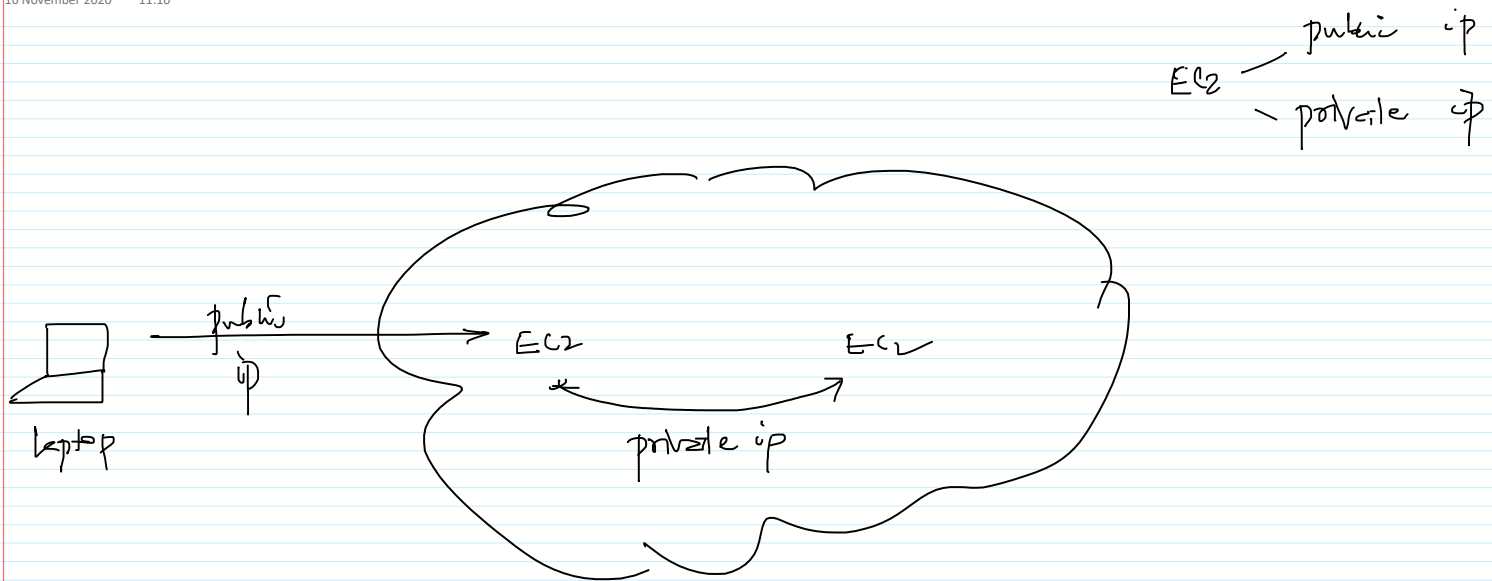 16 November 2020 11:10
public ip
EC2
private ip
public
ip
EC2
EC2
laptop
private ip